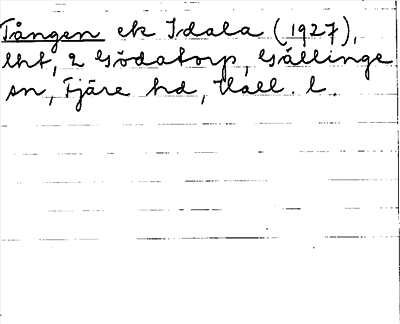 Tången ek Idala (1927),
lht, 2 Gödatorp, Gällinge
sn, Fjäre hd, Hall. l.